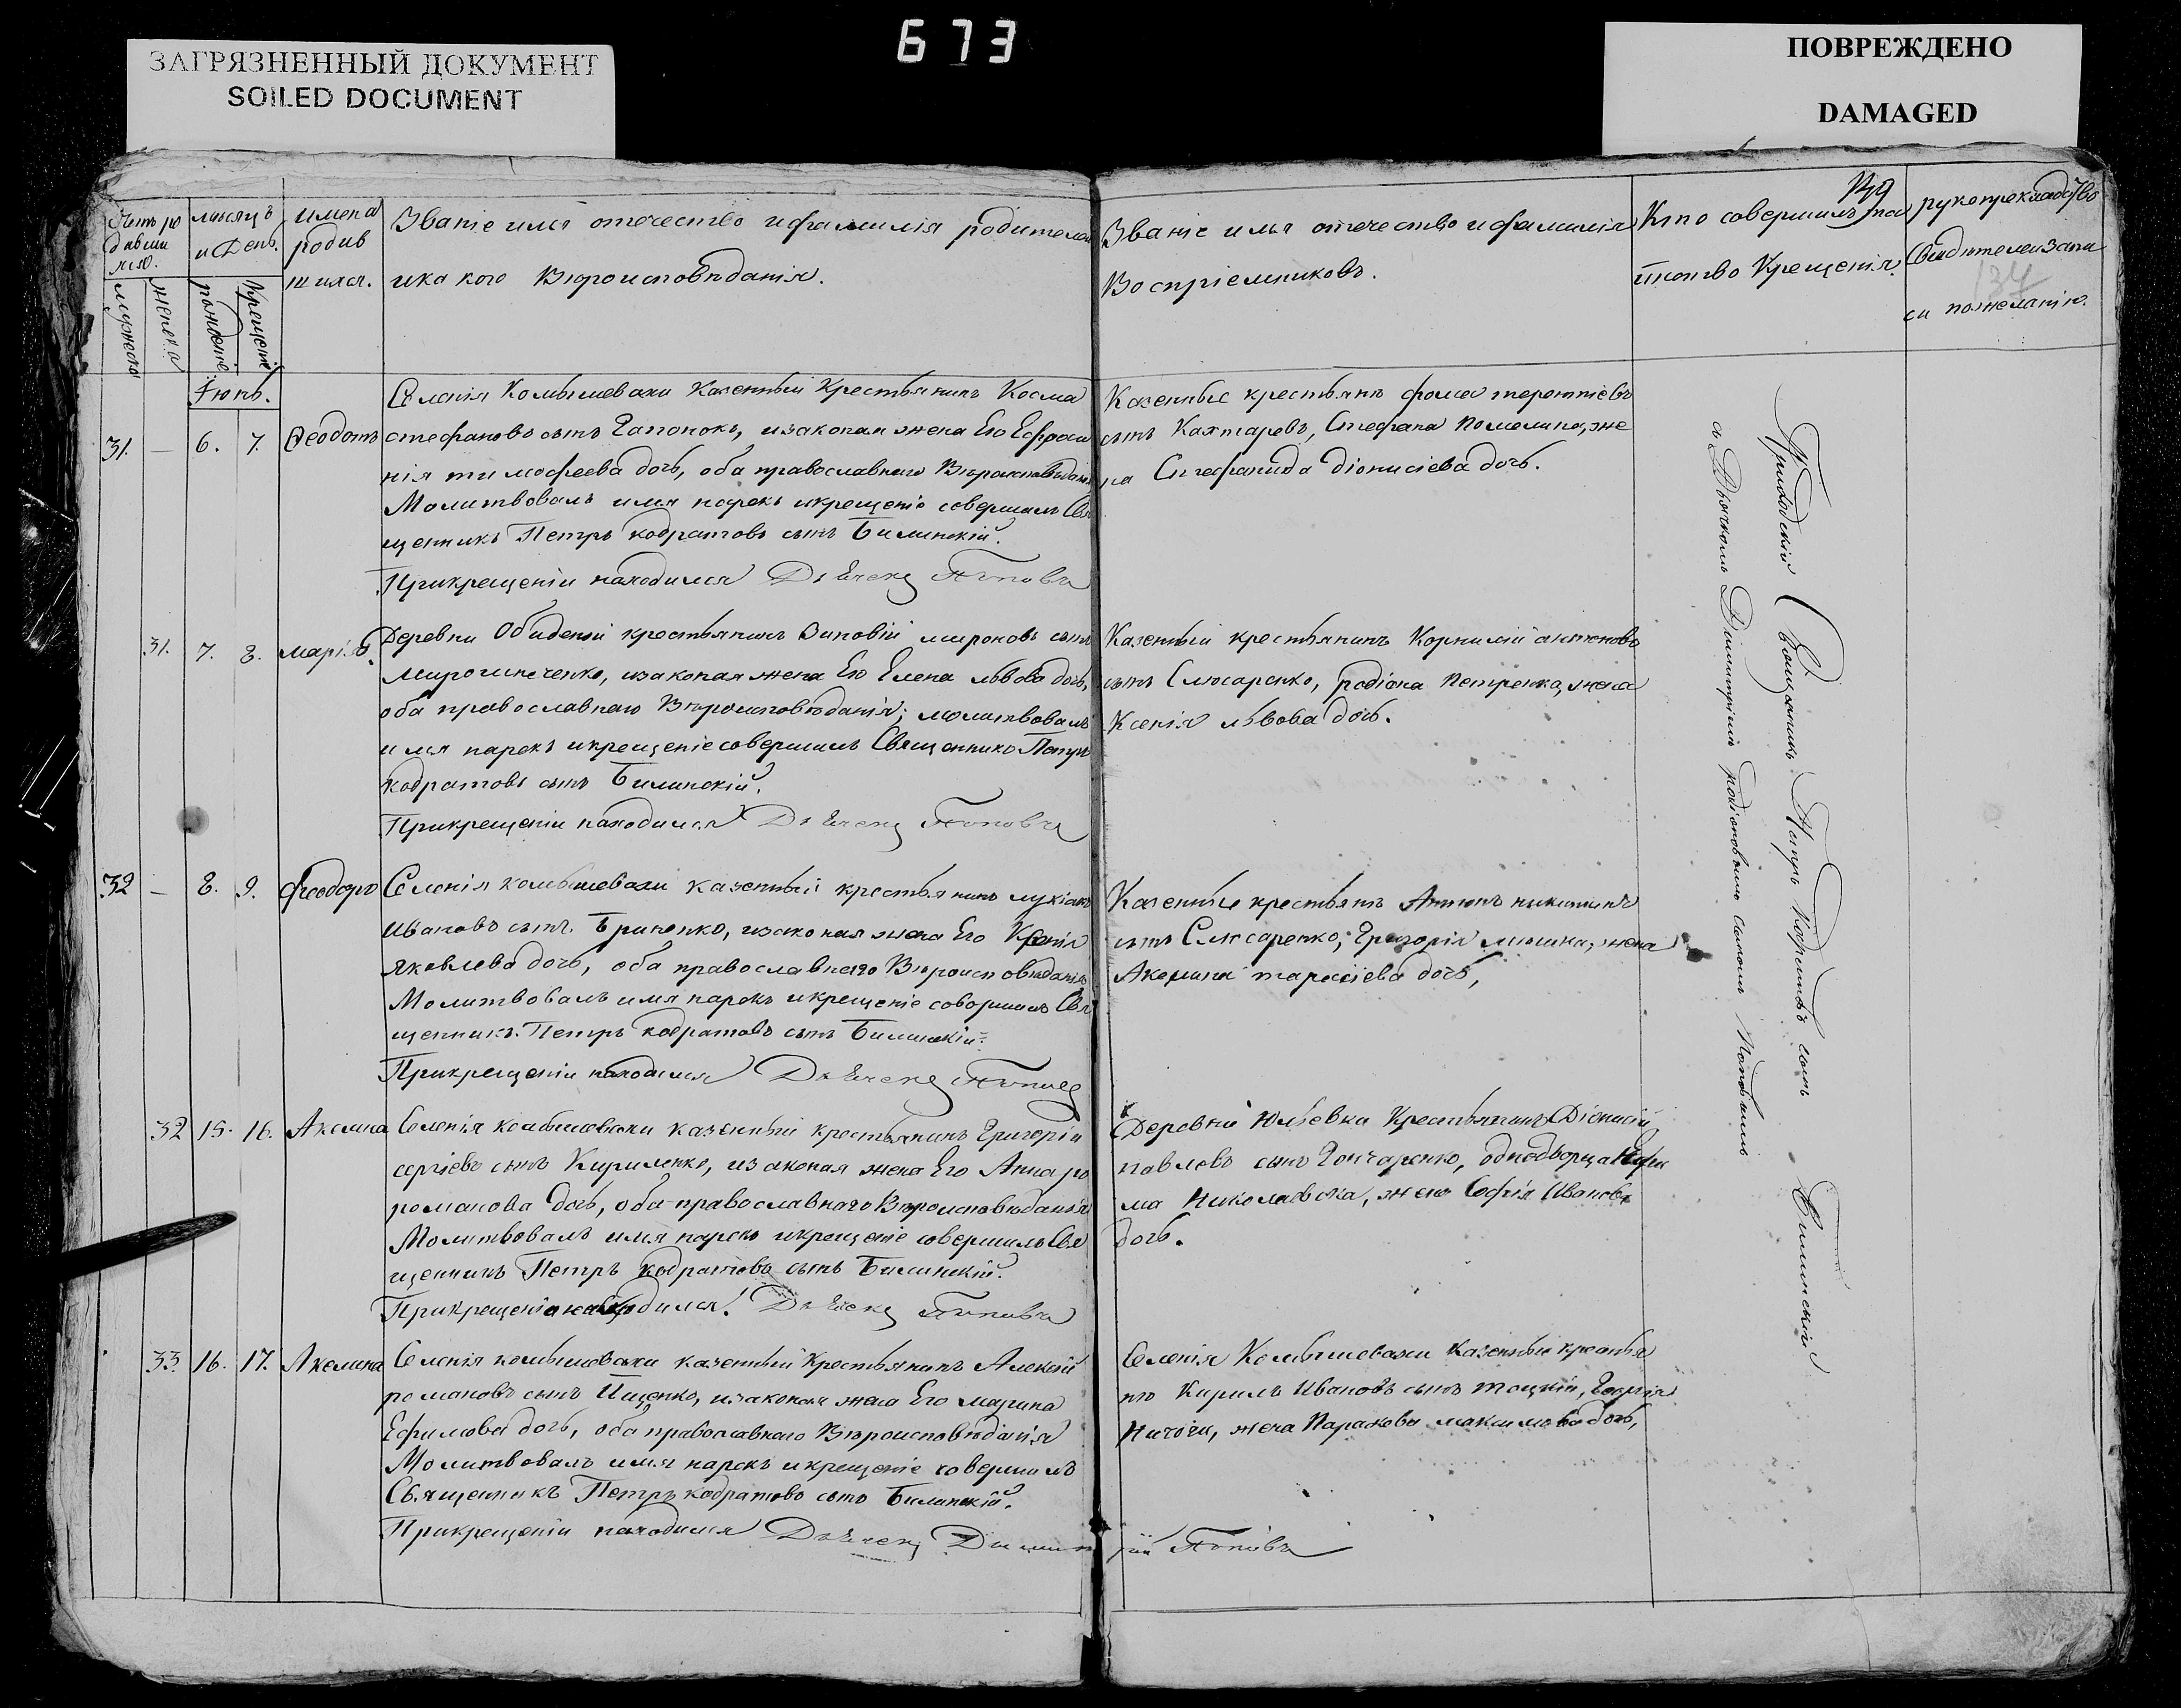 673
ЗАГРЯЗНЕННЫЙ ДОКУМЕНТ
SOILED DOCUMENT
ПОВРЕЖДЕНО
DAMAGED
Счетъ ро
мѣсяцъ
и День.
имена
родив
шихся.
Званіе имя отечество и фамилія родителей
и како го Вѣроисповѣданія.
Званіе имя отечество и фамилія
Воспріемниковъ.
Кто совершилъ та
инство Крещенія.
рукоприкладство
Свидѣтелей запи
си по желанію.
137
мужеска
женска
рожденіе
Крещеніе
Іюнь.
31. — 6. 7. Ѳеодотъ
Селенія Комышевахи Казенный Крестьянинъ Косма
стефановъ сынъ Гапонокъ, изаконая жена Его Ефроси
нія тимофеева дочь, оба православнаго Вѣроисповѣданія
Молитвовалъ имя нарекъ икрещеніе совершилъ Свя
щенникъ Петръ кодратовъ сынъ Билинскій.
Прикрещеніи находился Дьячекъ Поповъ
Казенные крестьянъ фома терентіевъ
сынъ Кахтаревъ, Стефана Помелина, же
на Стефанида діонисіева дочь.
31. 7. 8. Марія
Деревни Обиденой крестьянинъ Зиновій мироновъ сынъ
Мирошниченко, изаконая жена Его Елена львова дочь,
оба православнаго Вѣроисповѣданія; молитвовалъ
имя нарекъ икрещеніе совершилъ Священникъ Петръ
кодратовъ сынъ Билинскій.
Прикрещеніи находился Дьячекъ Поповъ
Казенный крестьянинъ Корнилій антоновъ
сынъ Слюсаренко, родіона Петренка, жена
Ксенія львова дочь.
32 — 8. 9. Феодоръ
Селенія комышевахи казенный крестьянинъ лукіанъ
Ивановъ сынъ Гриненко, изаконая жена Его Ксенія
Яковлева дочь, оба православнаго Вѣроисповѣданія
Молитвовалъ имя нарекъ икрещеніе совершилъ Свя
щенникъ Петръ кодратовъ сынъ Билинскій.
Прикрещеніи находился Дьячекъ Поповъ
Казенные крестьянъ Антонъ никитинъ
сынъ Слюсаренко, Григорія мишна, жена
Акелина тарасіева дочь,
32 15. 16. Акелина
Селенія комышевахи казенный крестьянинъ Григорій
сергіевъ сынъ Кириленко, изаконая жена Его Анна ро
романова дочь, оба православнаго Вѣроисповѣданія
Молитвовалъ имя нарекъ икрещеніе совершилъ Свя
щенникъ Петръ кодратовъ сынъ Билинскій.
Прикрещеніи находился. Дьячекъ Поповъ
Деревни Юльевки Крестьянинъ Діонисій
павловъ сынъ Гончаренко, однодворца
ма Николаевска, жена Софія Иванова
дочь.
33. 16. 17. Акелина
Селенія комышевахи казенный Крестьянинъ Алексій
романовъ сынъ Ищенко, изаконая жена Его марина
Ефимова дочь, оба православнаго Вѣроисповѣданія
Молитвовалъ имя нарекъ икрещеніе совершилъ
Священникъ Петръ кодратовъ сынъ Билинскій.
Прикрещеніи находился Дьячекъ Димитрій Поповъ
Селенія Комышевахи казенный крестья
нъ Кирилъ Ивановъ сынъ тоцкій,
жена Параскева максимова дочь,
Приходскій Священникъ Петръ Кодратовъ сынъ Билинскій
съ Дьячкомъ Димитріемъ родіоновымъ сыномъ Поповымъ